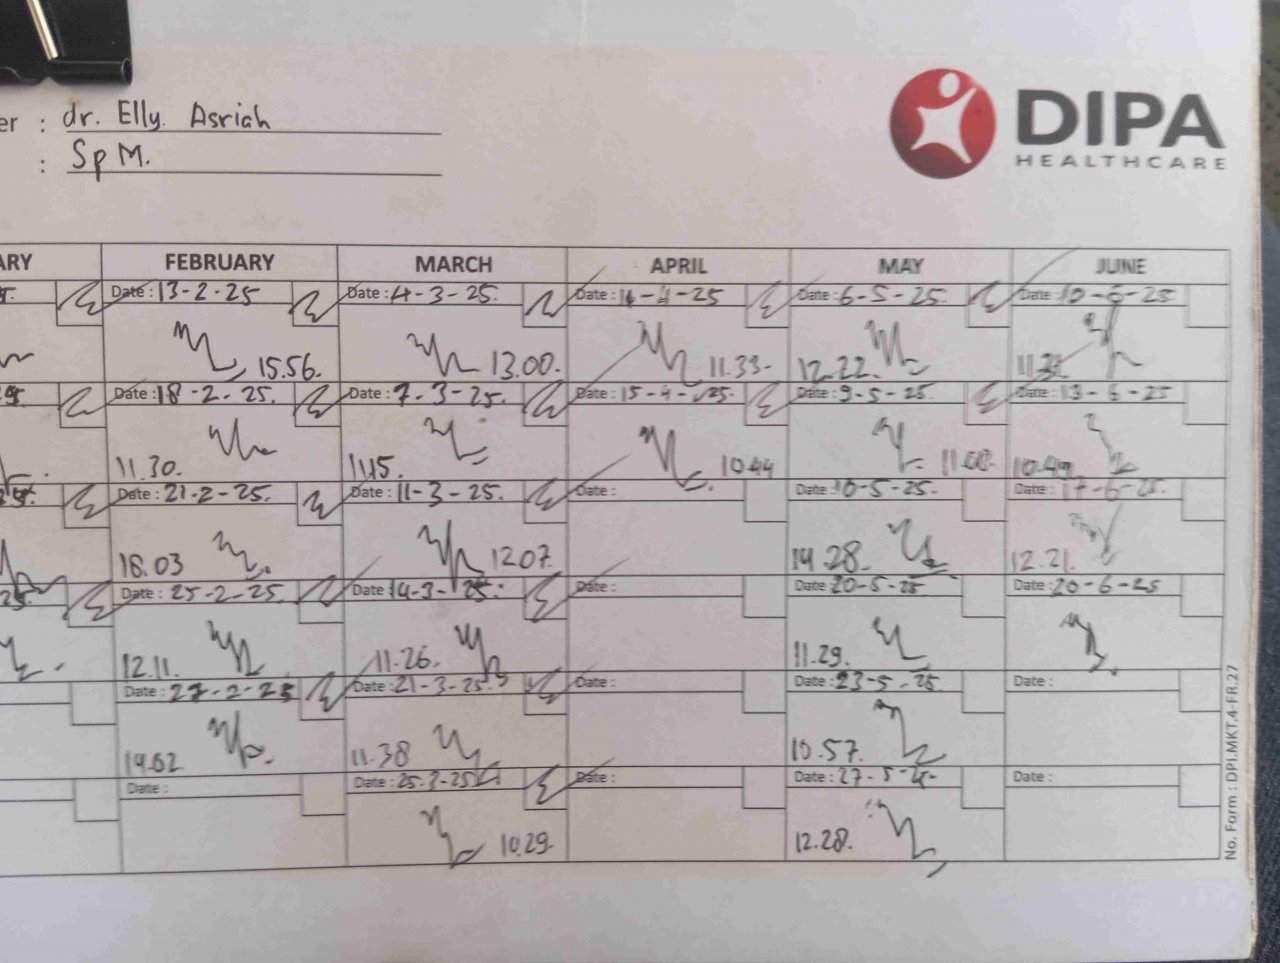 er : dr. Elly. Asriah
: Sp M.
DIPA
HEALTHCARE
ARY FEBRUARY MARCH APRIL MAY JUNE
Date : 13-2-25 Date : 4-3-25. Date : -4-25 Date : 6-5-25. Date : 10-6-25
15.56. 13.00. 11.33. 12.22.
Date : 18-2-25. Date : 7-3-25. Date : 15-4-25. Date : 9-5-25. Date : 13-6-25
11.30. 11.15. 10.44 10.49
Date : 21-2-25. Date : 11-3-25. Date : Date : -5-25. Date : 17-6-25.
18.03 12.07. 14.28. 12.21.
25. Date : 25-2-25. Date : 14-3-25. Date : Date : 20-5-25 Date : 20-6-25
12.11. 11.26. 11.29.
Date : 27-2-25 Date : 21-3-25. Date : Date : 23-5-25. Date :
14.02 11.38 10.57.
Date : Date : 25-3-25 Date : Date : 27-5- Date :
10.29. 12.28.
No. Form : DPI.MKT.4-FR.27